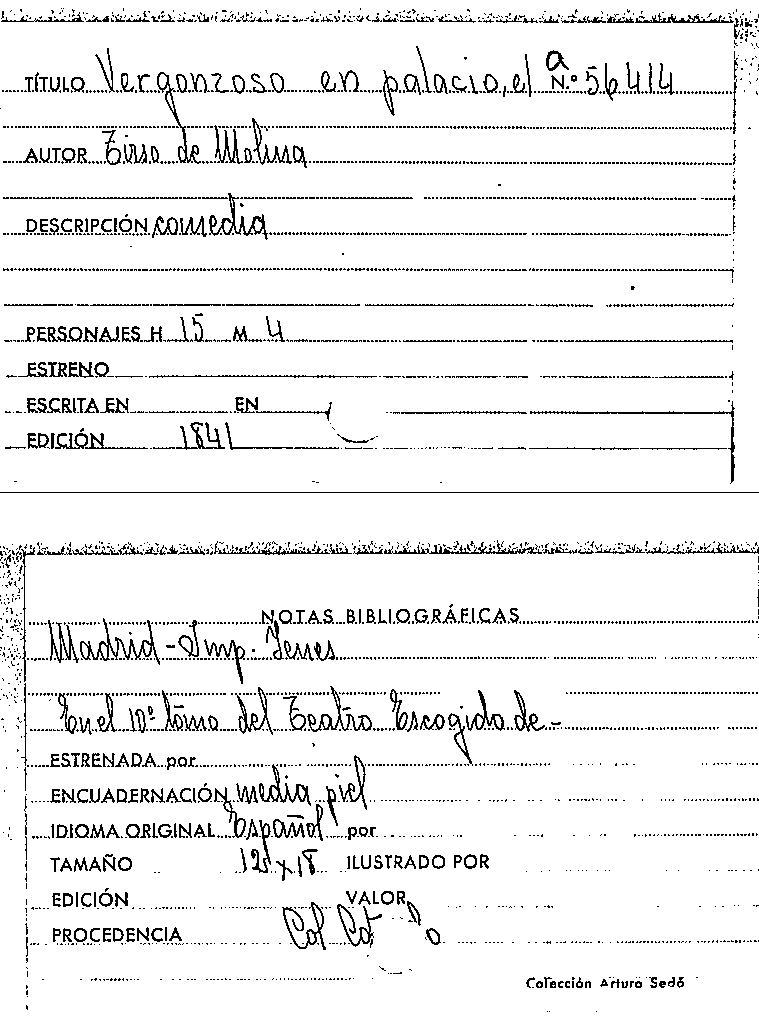 TÍTULO Vergonzoso en palacio, el a N.º 56414
AUTOR Tirso de Molina
DESCRIPCIÓN comedia
PERSONAJES H 15 M 4
ESTRENO
ESCRITA EN EN
EDICIÓN 1841
NOTAS BIBLIOGRÁFICAS
Madrid - Imp. Yenes
En el 10º tomo del Teatro Escogido de -
ESTRENADA por
ENCUADERNACIÓN media piel
IDIOMA ORIGINAL Español por
TAMAÑO 12 x 18 ILUSTRADO POR
EDICIÓN VALOR
PROCEDENCIA Col
Colección Arturo Sedó